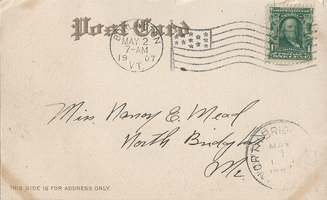 Post Card
MAY 2
7-AM
1907
VT.
1
Miss. Nancy E. Mead
North Bridgton
Me.
NORTH BRIDG
MAY
THIS SIDE IS FOR ADDRESS ONLY.